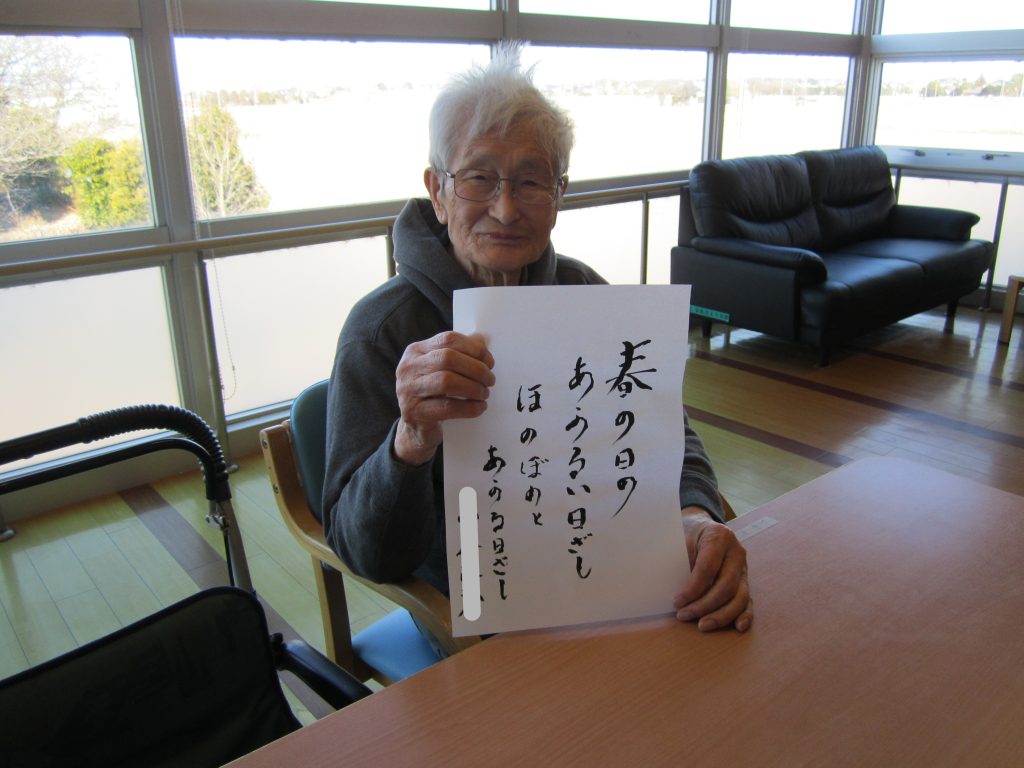 春の日の
あかるい日ざし
ほのぼのと
あかる日ざし